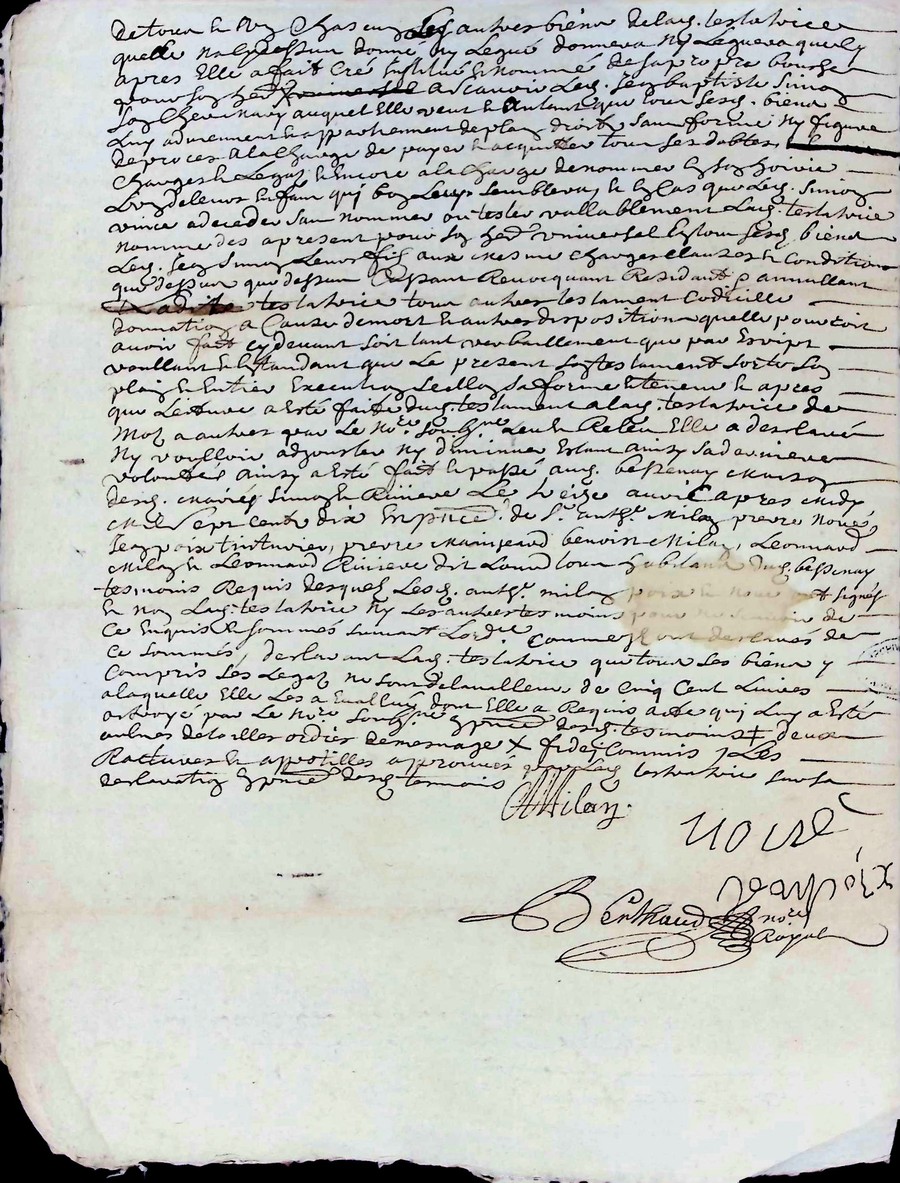 de tous & Un Chascungs les autres biens de lad. testatrice
quelle na cy dessus donné ny Legué donnera Ny Leguera quelz
apres Elle a fait Créé Institué & nommés de sa propre bouche
pour son hed. a scavoir Led. Jean baptiste Simon
Son cher mary auquel Elle veut & Entent que tous sesd. biens
Luy adviennent & appartiennent de plain droit sans forme Ny figure
de proces A la Charge de payer & acquitter tous ses debtes
Charges & Legaz & Encore a la Charge de nommer En son hoirie
L'un de leurs Enfans qui bon Leur Semblera, & En Cas que Led. Simon
vint a deceder san nommer ou tester vallablement Lad. testatrice
nomme des apresent pour son hed. universel En tous sesd. biens
Led. Jean Simon Leur fils aux mesmes charges clauses & Conditions
que dessus que dessus Cassant Revocquant Resindant & annullant
Ladite testatrice tous autres testament Codicille
donnation a Cause de mort & autres disposition quelle pourroit
avoir fait cy devant soit tant verballement que par Escript
voullant & Entandant que Le present Son testament Sorte Son
plain & Entier Execution Sellon Sa forme & teneur & apres
que Lecture a Esté faite dud. testament a lad. testatrice de
Mot a autres par Le Nore. Soubsne Leu & Releu Elle a desclaré
Ny voulloir adjouster Ny diminuer Estant ainsy Sa derniere
volontés ainsy a Esté fait & passé aud. bessenay Maison
desd. mariés Simon & Riviere Le treise avril apres midy
Mil Sept Cent dix En pnce. de Sr. anthe. Milan prevre Noire,
Jean poix tinturier, pierre Mainjeard benoist Milan, Leonnard
Milan & Leonnard Riviere dit Louis tous habitant dud. bessenay
tesmoins Requis desquel Lesd. anthe. milan poix & Noire ont signés
& non Lad. testatrice Ny Les autres tesmoins pour ne scavoir de
ce Enquis & Sommés suivant Lorde. Comme Ils ont desclarés de
ce Sommés, desclarant Lad. testatrice que tous Ses biens y
Compris Les Legaz ne sont de la valleur de Cinq Cent Livres
a laquelle Elle Les a Evallués dont Elle a Requis acte qui Luy a Esté
octroyé par Le Nore. Soubsne En pnce. desd. tesmoins ‡ deux
aulnes de toilles ordies de mesnage X fidei Commis, Les
Ractures & appostilles approuvés par Lad. testatrice sur sa
desclaration En pnce. desd. tesmoins
AMilan.
noire
Jean poix
Berthaud nore.
Royal